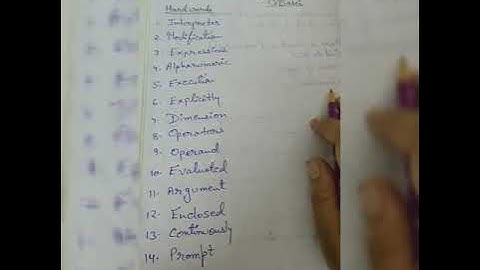 Hard words
1. Interpreter
2. Modification
3. Expressions
4. Alphanumeric
5. Execution
6. Explicitly
7. Dimension
8. Operations
9. Operand
10. Evaluated
11. Argument
12. Enclosed
13. Continuously
14. Prompt